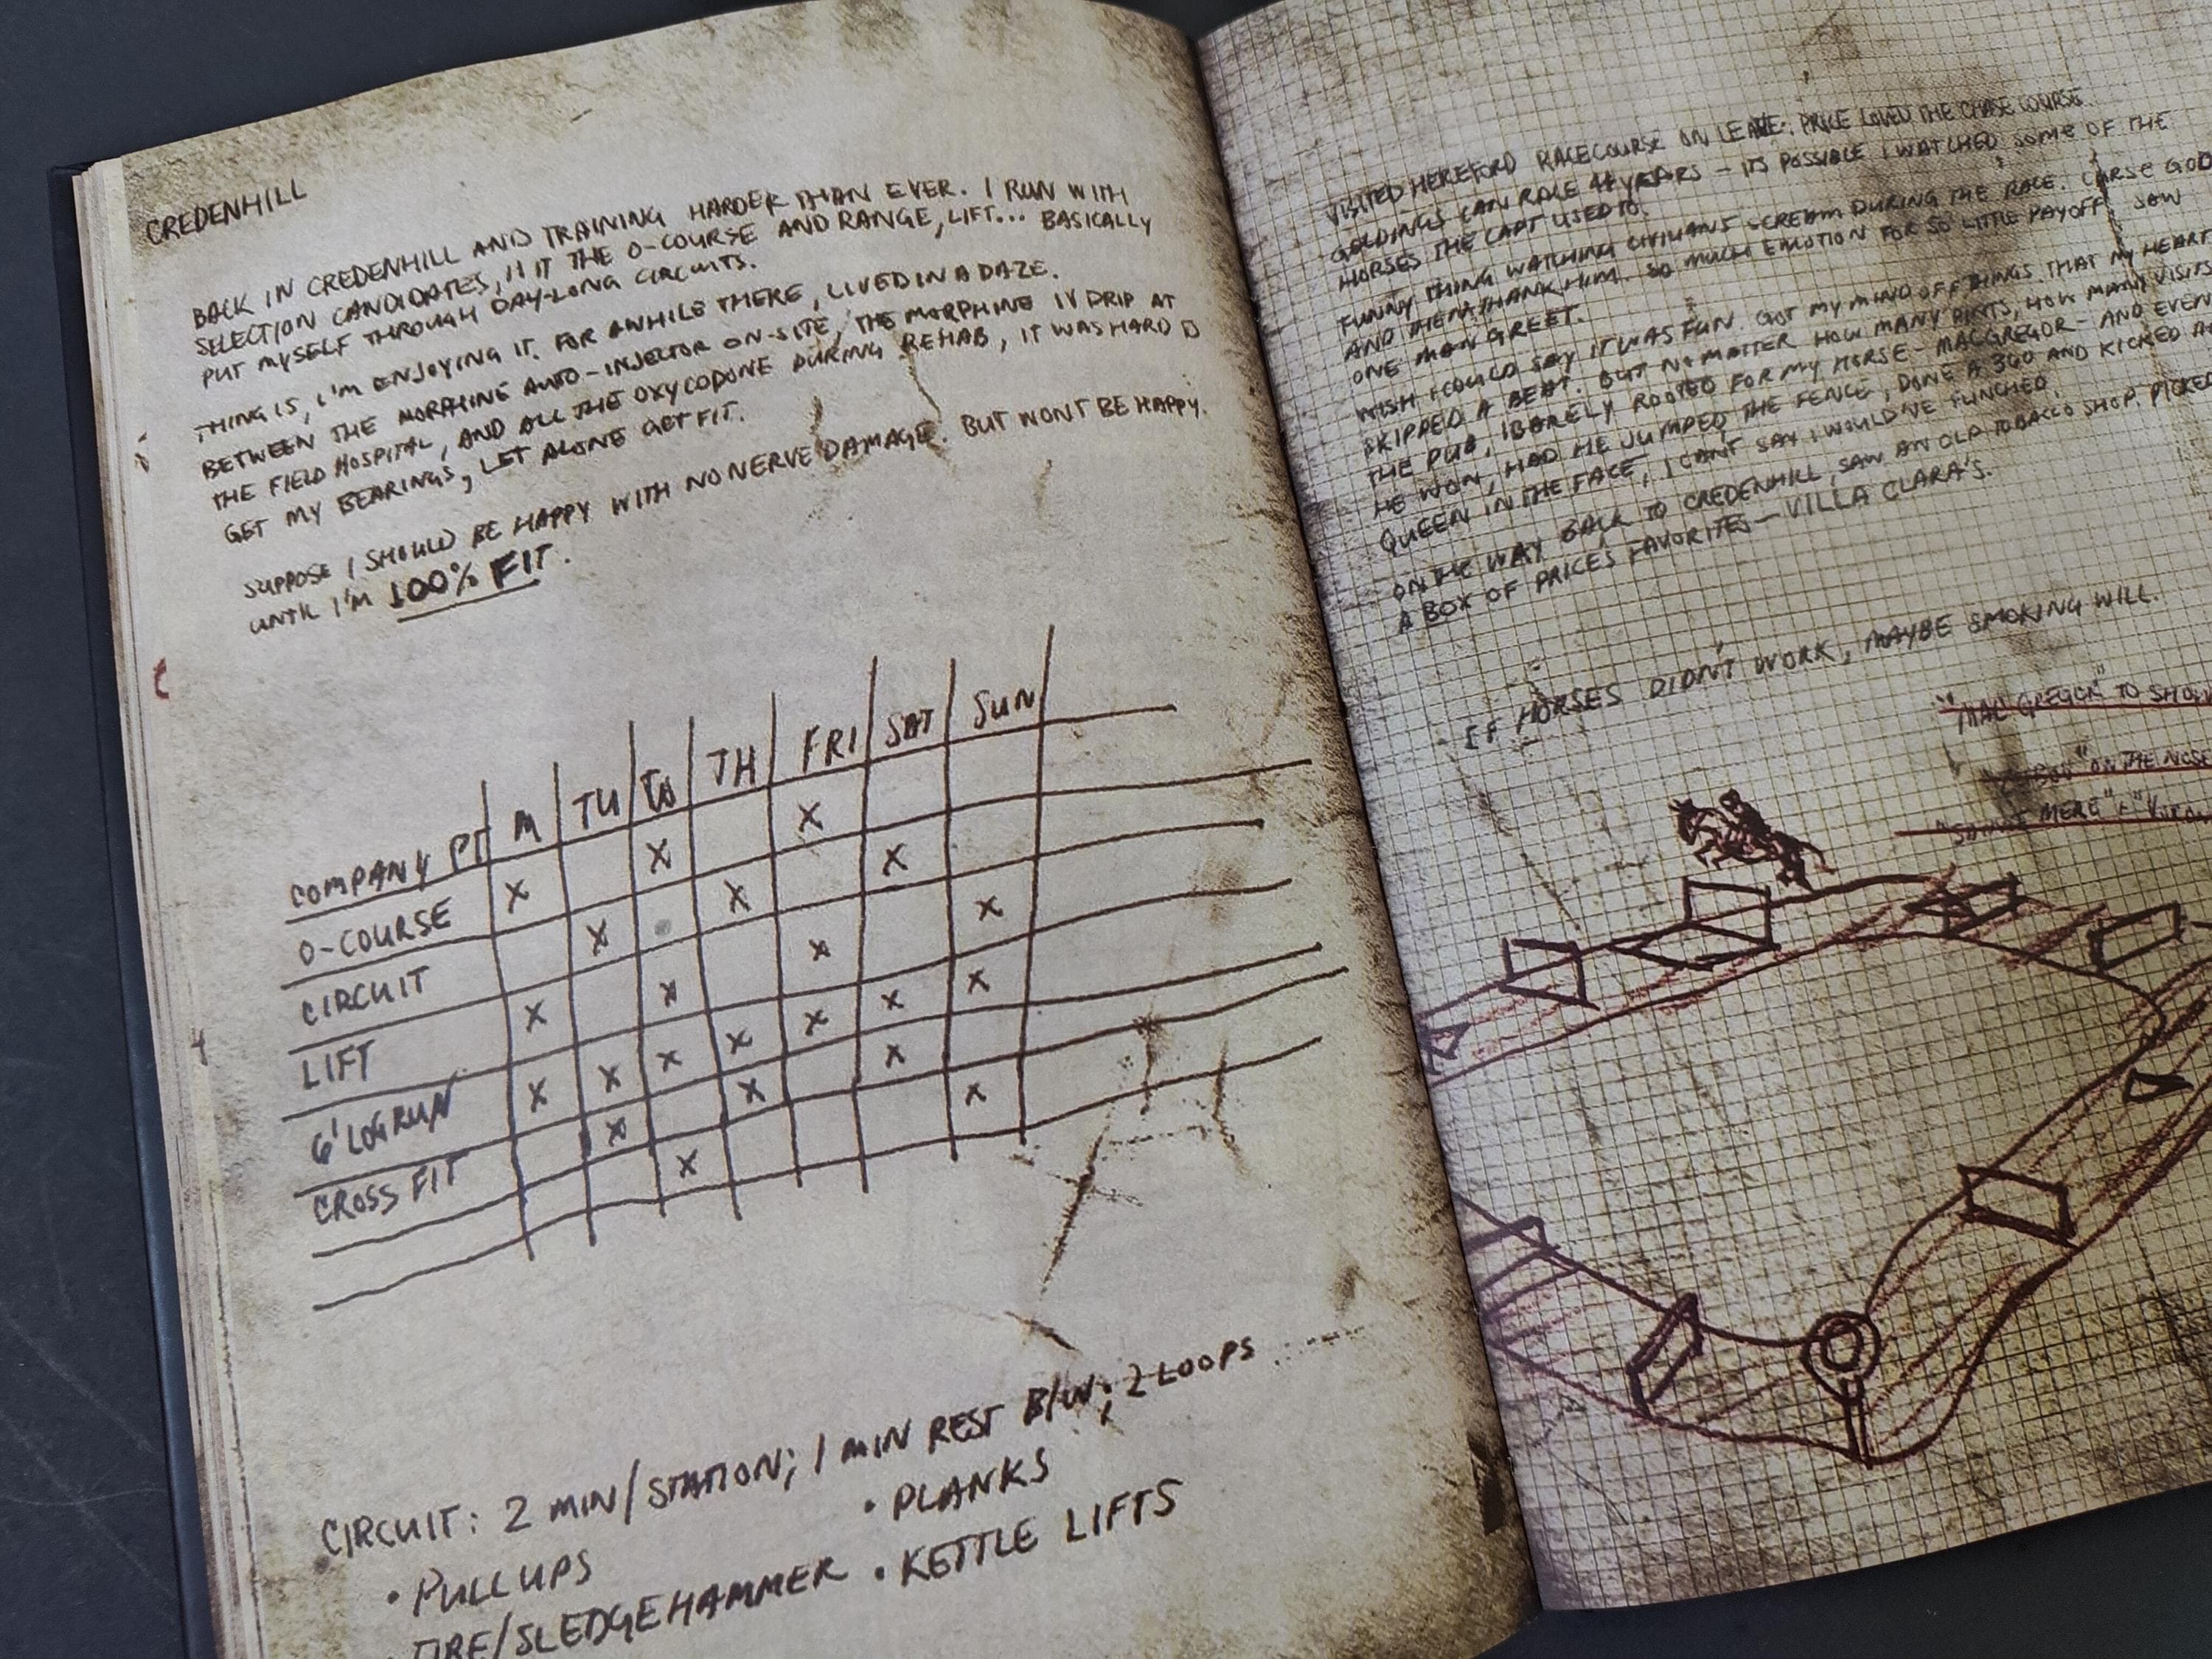 CREDENHILL
BACK IN CREDENHILL AND TRAINING HARDER THAN EVER. I RUN WITH
SELECTION CANDIDATES, HIT THE O-COURSE AND RANGE, LIFT... BASICALLY
PUT MYSELF THROUGH DAY-LONG CIRCUITS.
THING IS, I'M ENJOYING IT. FOR AWHILE THERE, LIVED IN A DAZE.
BETWEEN THE MORPHINE AUTO-INJECTOR ON-SITE, THE MORPHINE IV DRIP AT
THE FIELD HOSPITAL, AND ALL THE OXYCODONE DURING REHAB, IT WAS HARD TO
GET MY BEARINGS, LET ALONE GET FIT.
SUPPOSE I SHOULD BE HAPPY WITH NO NERVE DAMAGE. BUT WONT BE HAPPY
UNTIL I'M 100% FIT.
M TU W TH FRI SAT SUN
COMPANY PT X X X
O-COURSE X X X
CIRCUIT X X X
LIFT X X X X X X X
6' LOG RUN X X X
CROSS FIT X X
CIRCUIT: 2 MIN/STATION; 1 MIN REST B/W; 2 LOOPS
• PULLUPS • PLANKS
TIRE/SLEDGEHAMMER • KETTLE LIFTS
VISITED HEREFORD RACECOURSE ON LEAVE. PRICE LOVED THE CHASE COURSE.
GOLDINGS CAN RACE 4+ YEARS - ITS POSSIBLE I WATCHED SOME OF THE
HORSES THE CAPT USED TO.
FUNNY THING WATCHING CIVILIANS SCREAM DURING THE RACE. CURSE GOD
AND THEN THANK HIM. SO MUCH EMOTION FOR SO LITTLE PAYOFF. SAW
ONE MAN GREET.
WISH I COULD SAY IT WAS FUN. GOT MY MIND OFF THINGS. THAT MY HEART
SKIPPED A BEAT. BUT NO MATTER HOW MANY PINTS, HOW MANY VISITS
THE PUB, I BARELY ROOTED FOR MY HORSE - MACGREGOR - AND EVEN
HE WON, HAD HE JUMPED THE FENCE, DONE A 360 AND KICKED
QUEEN IN THE FACE, I CAN'T SAY I WOULD'VE FLINCHED.
ON THE WAY BACK TO CREDENHILL, SAW AN OLD TOBACCO SHOP. PICKED
A BOX OF PRICE'S FAVORITES - VILLA CLARA'S.
IF HORSES DIDN'T WORK, MAYBE SMOKING WILL.
"MAC GREGOR" TO
ON THE NOSE
MERE" +